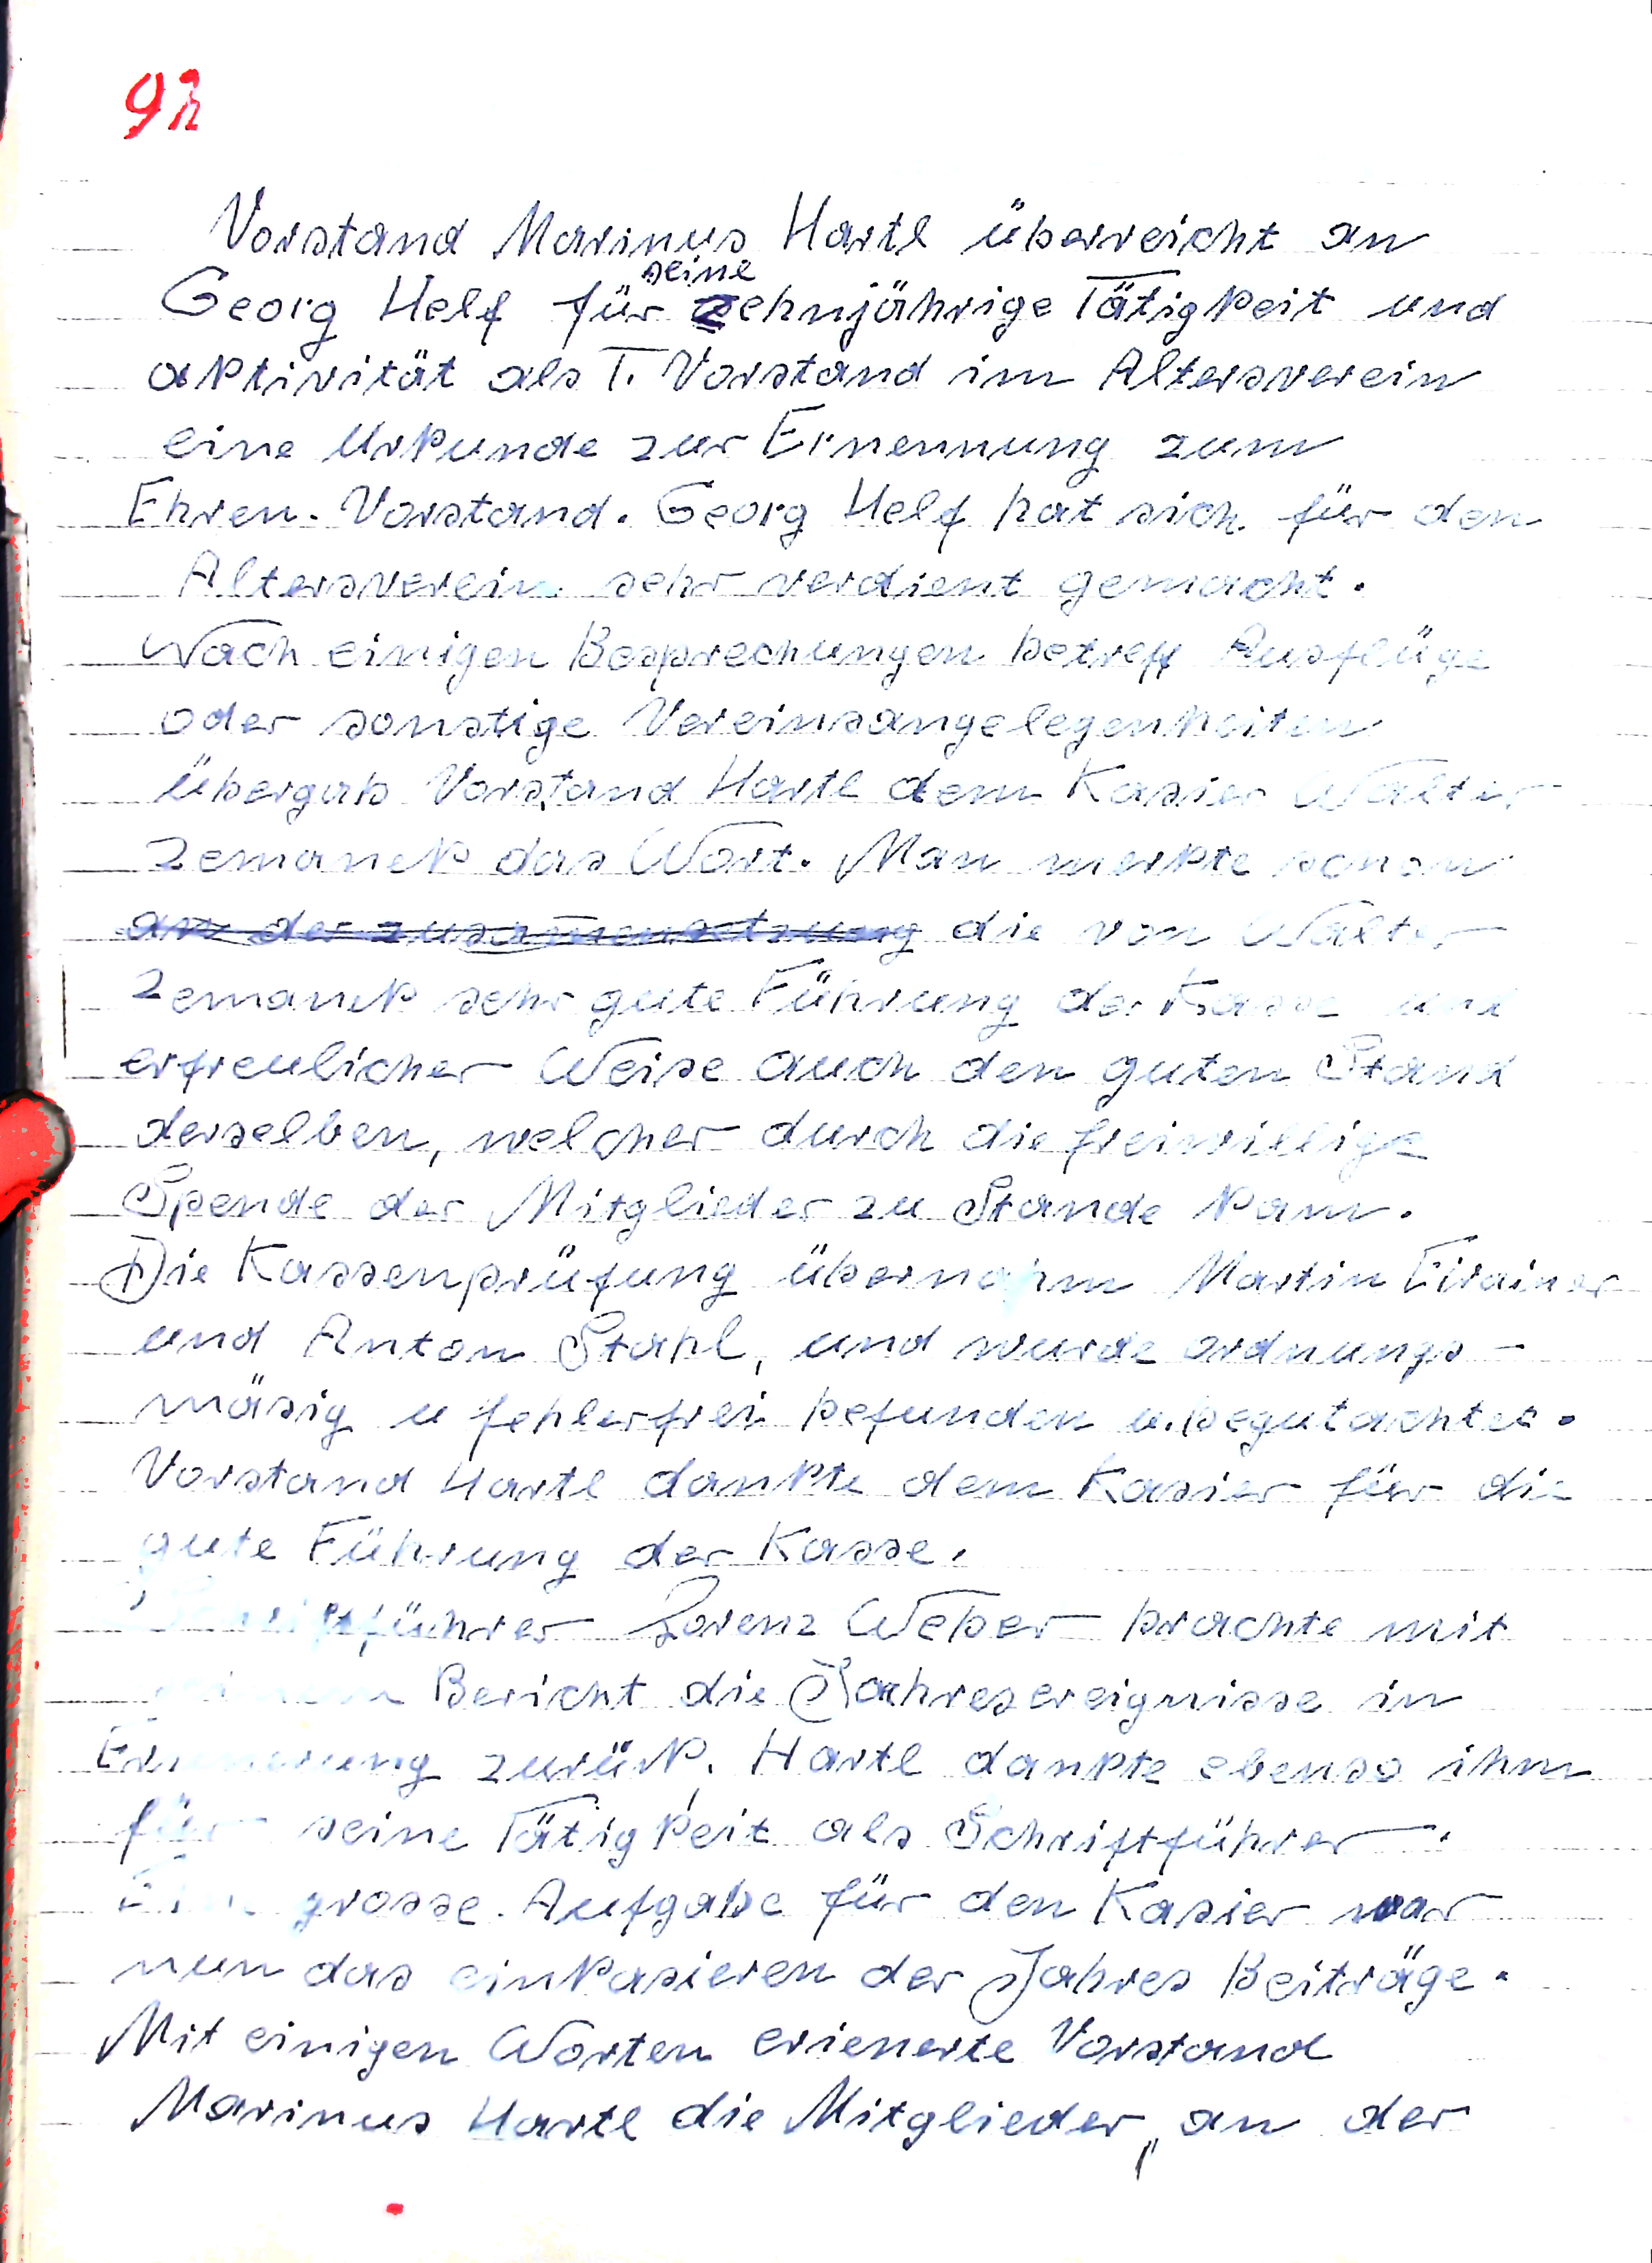 92
Vorstand Marinus Hartl überreicht an
seine
Georg Helf für zehnjährige Tätigkeit und
aktivität als I. Vorstand im Altersverein
eine Urkunde zur Ernennung zum
Ehren-Vorstand. Georg Helf hat sich für den
Altersverein sehr verdient gemacht.
Nach einigen Besprechungen betreff Ausflüge
oder sonstige Vereinsangelegenheiten
übergab Vorstand Hartl dem Kasier Walter
Zemanek das Wort. Man merkte schon
an der zusammensetzung die von Walter
Zemanek sehr gute Führung der Kasse und
erfreulicher Weise auch den guten Stand
derselben, welcher durch die freiwillige
Spende der Mitglieder zu Stande kam.
Die Kassenprüfung übernahm Martin
und Anton Stahl, und wurde ordnungs-
mäsig u fehlerfrei befunden u. begutachtet.
Vorstand Hartl dankte dem Kasier für die
gute Führung der Kasse.
Schriftführer Lorenz Weber brachte mit
seinem Bericht die Jahresereignisse in
Erinnerung zurük. Hartl dankte ebenso ihm
für seine Tätigkeit als Schriftführer.
Eine grosse Aufgabe für den Kasier war
nun das einkasieren der Jahres Beiträge.
Mit einigen Worten erienerte Vorstand
Marinus Hartl die Mitglieder, an der